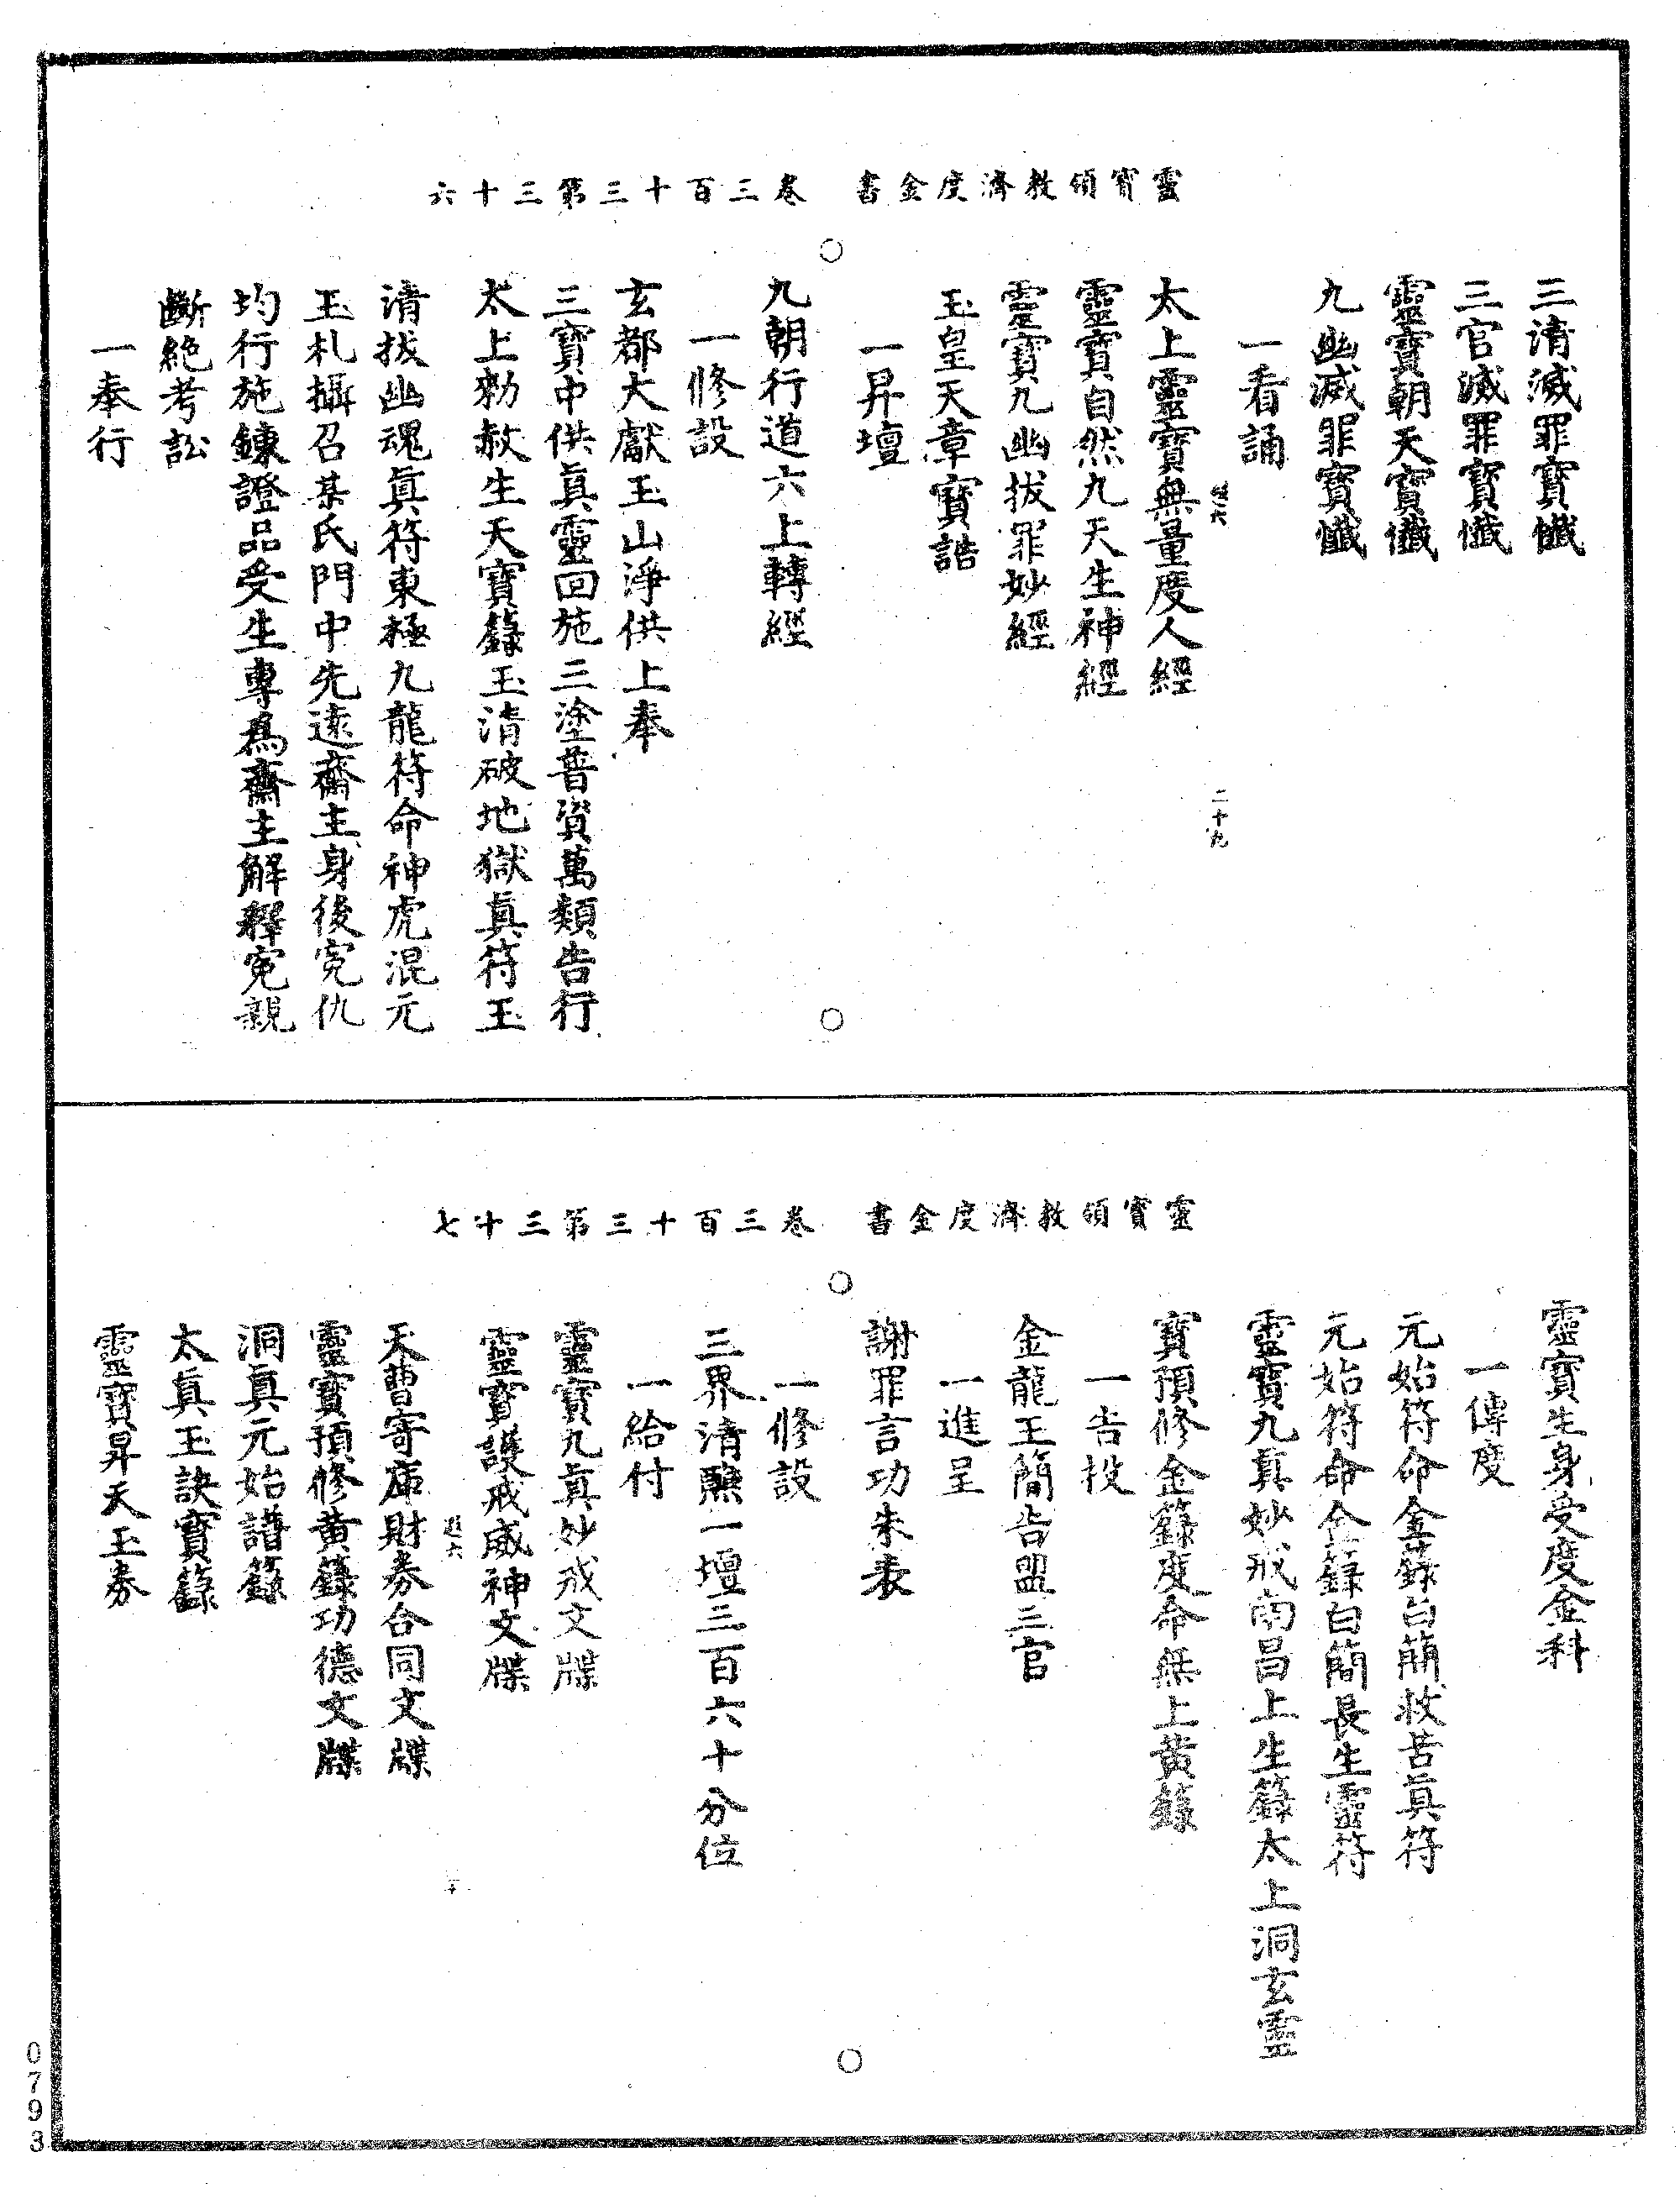 靈寶領教濟度金書　卷三百十三第三十六
三清滅罪寶懺
三官滅罪寶懺
靈寶朝天寶懺
九幽滅罪寶懺
一看誦
二十九
太上靈寶無量度人經
靈寶自然九天生神經
靈寶九幽拔罪妙經
玉皇天章寶誥
一昇壇
九朝行道六上轉經
一修設
玄都大獻玉山淨供上奉
三寶中供真靈回施三塗普資萬類告行
太上勑赦生天寶籙玉清破地獄真符玉
清拔幽魂真符東極九龍符命神虎混元
玉札攝召某氏門中先遠齋主身後冤仇
均行施鍊證品受生專為齋主解釋冤親
斷絶考訟
一奉行
靈寶領教濟度金書　卷三百十三第三十七
靈寶生身受度金科
一傳度
元始符命金籙白簡救苦真符
元始符命金籙白簡長生靈符
靈寶九真妙戒南昌上生籙太上洞玄靈
寶預修金籙度命無上黃籙
一告投
金龍玉簡告盟三官
一進呈
謝罪言功朱表
一修設
三界清醮一壇三百六十分位
一給付
靈寶九真妙戒文牒
靈寶護戒威神文牒
三十
天曹寄庫財券合同文牒
靈寶預修黃籙功德文牒
洞真元始譜籙
太真玉訣寶籙
靈寶昇天玉券
0793